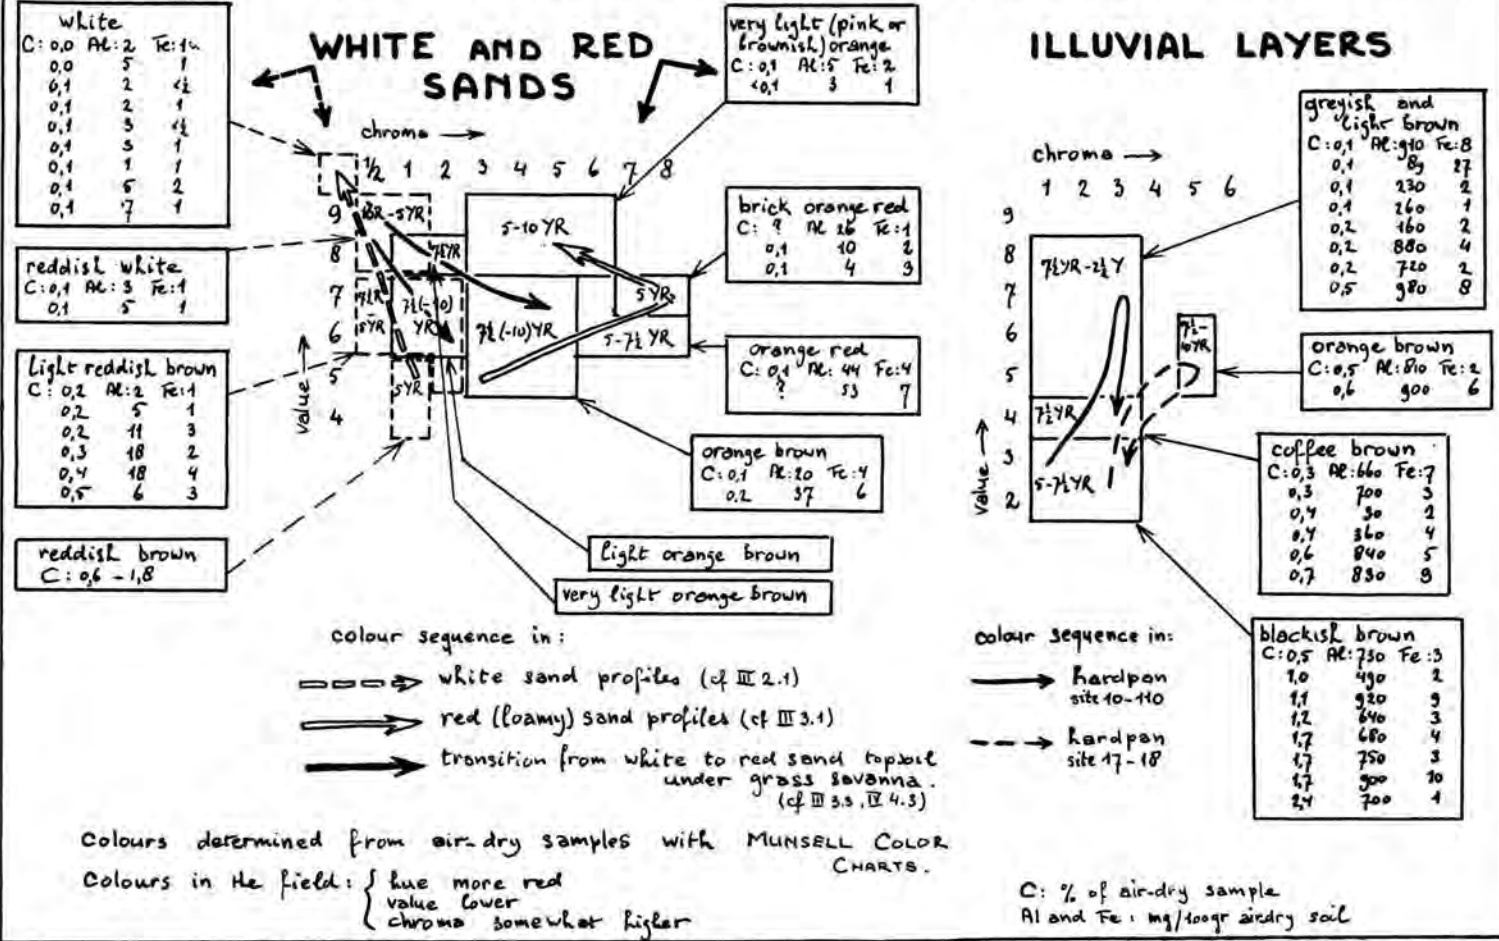 WHITE AND RED
SANDS
white
C: 0,0 Al: 2 Fe: 1
0,0 5 1
0,1 2 <½
0,1 2 1
0,1 3 <½
0,1 3 1
0,1 1 1
0,1 5 2
0,1 7 1
reddish white
C: 0,1 Al: 3 Fe: 1
0,1 5 1
light reddish brown
C: 0,2 Al: 2 Fe: 1
0,2 5 1
0,2 11 3
0,3 18 2
0,4 18 4
0,5 6 3
reddish brown
C: 0,6 - 1,8
very light (pink or
brownish) orange
C: 0,1 Al: 5 Fe: 2
<0,1 3 1
brick orange red
C: ? Al 26 Fe: 1
0,1 10 2
0,1 4 3
orange red
C: 0,1 Al: 44 Fe: 4
? 53 7
orange brown
C: 0,1 Al: 20 Fe: 4
0,2 37 6
light orange brown
very light orange brown
chroma →
½ 1 2 3 4 5 6 7 8
value →
9
8
7
6
5
4
10R-5YR
7½YR
5-10 YR
7½YR
7½(-10)
YR
7½(-10)YR
5 YR
5YR
5-7½ YR
5YR
colour sequence in:
white sand profiles (cf III 2.1)
red (loamy) sand profiles (cf III 3.1)
transition from white to red sand topsoil
under grass savanna.
(cf III 3.3, IV 4.3)
Colours determined from air-dry samples with MUNSELL COLOR
CHARTS.
Colours in the field: { hue more red
value lower
chroma somewhat higher
ILLUVIAL LAYERS
chroma →
1 2 3 4 5 6
value →
9
8
7
6
5
4
3
2
7½YR-2½Y
7½-
10YR
7½YR
5-7½YR
greyish and
light brown
C: 0,1 Al: 910 Fe: 8
0,1 89 27
0,1 230 2
0,1 260 1
0,2 160 2
0,2 880 4
0,2 720 2
0,5 980 8
orange brown
C: 0,5 Al: 810 Fe: 2
0,6 900 6
coffee brown
C: 0,3 Al: 660 Fe: 7
0,3 700 3
0,4 30 2
0,4 360 4
0,6 840 5
0,7 830 9
blackish brown
C: 0,5 Al: 730 Fe: 3
1,0 490 2
1,1 920 9
1,2 640 3
1,7 680 4
1,7 750 3
1,7 900 10
2,4 700 1
colour sequence in:
hardpan
site 10-110
hardpan
site 17-18
C: % of air-dry sample
Al and Fe: mg/100gr airdry soil